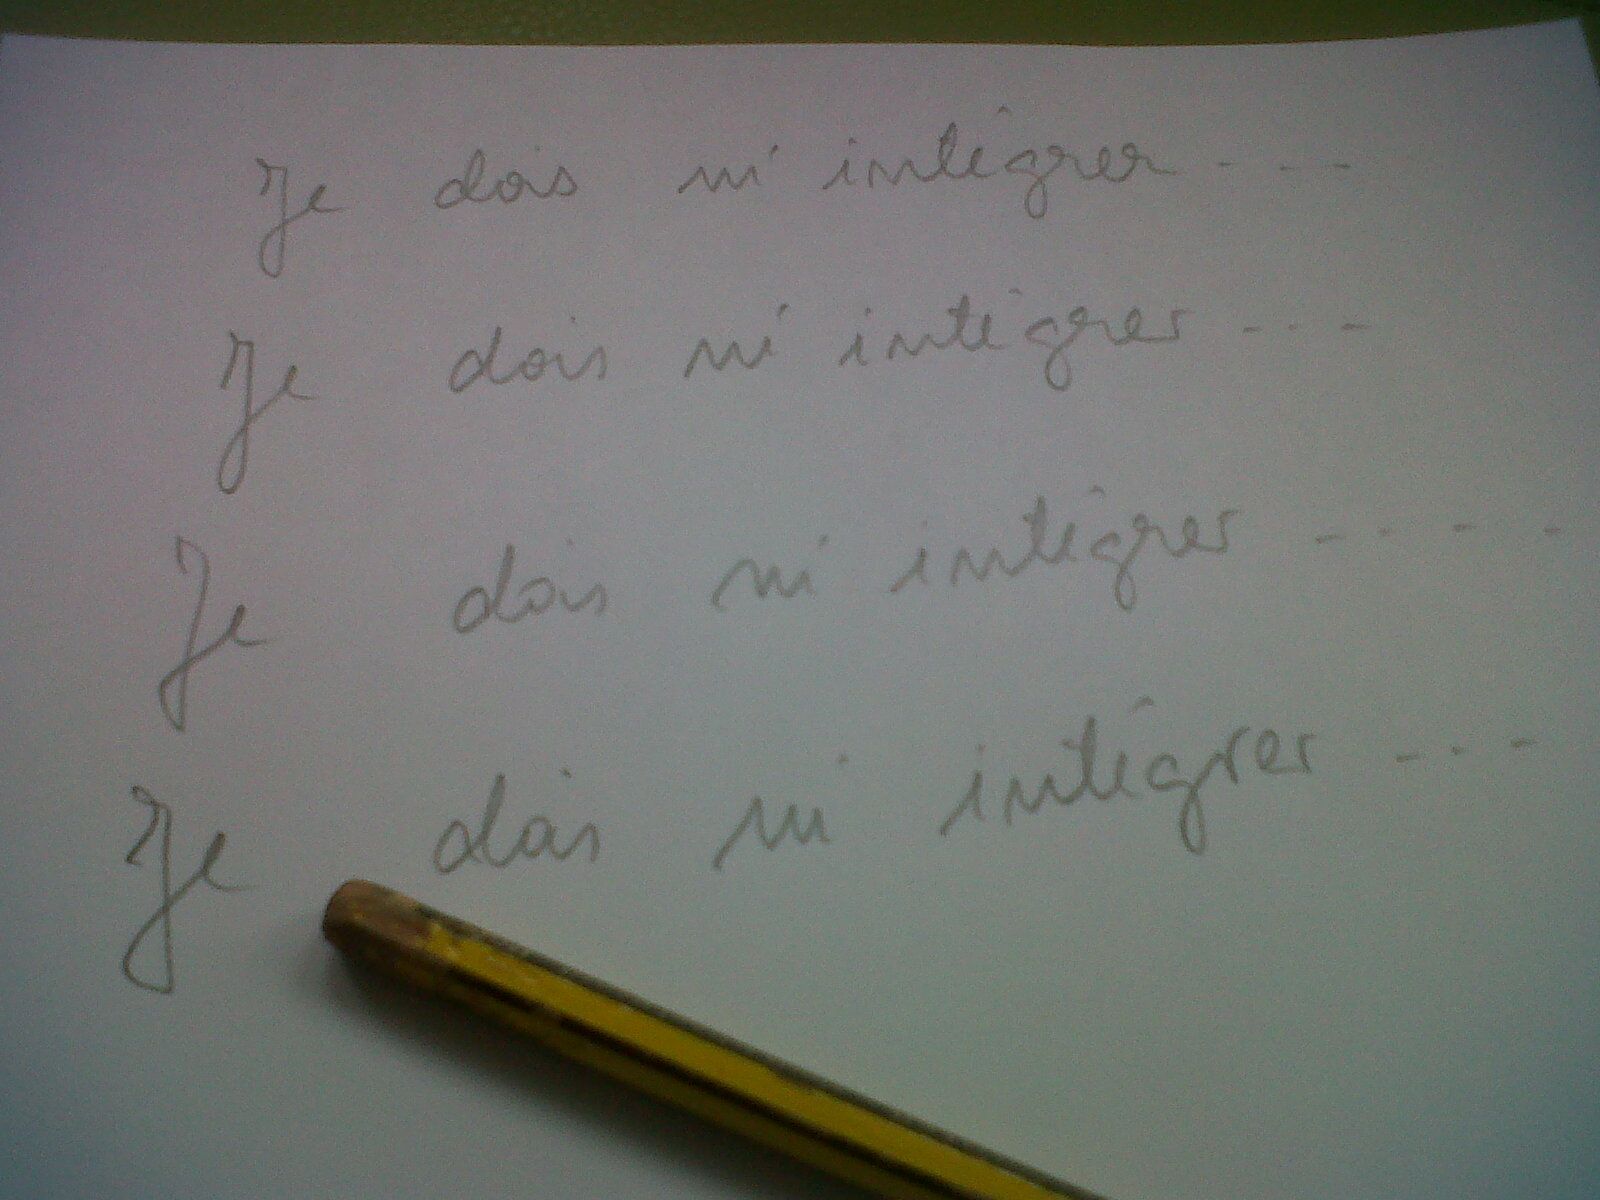 Je dois m'intégrer ...
Je dois m'intégrer ...
Je dois m'intégrer ....
Je dois m'intégrer ...